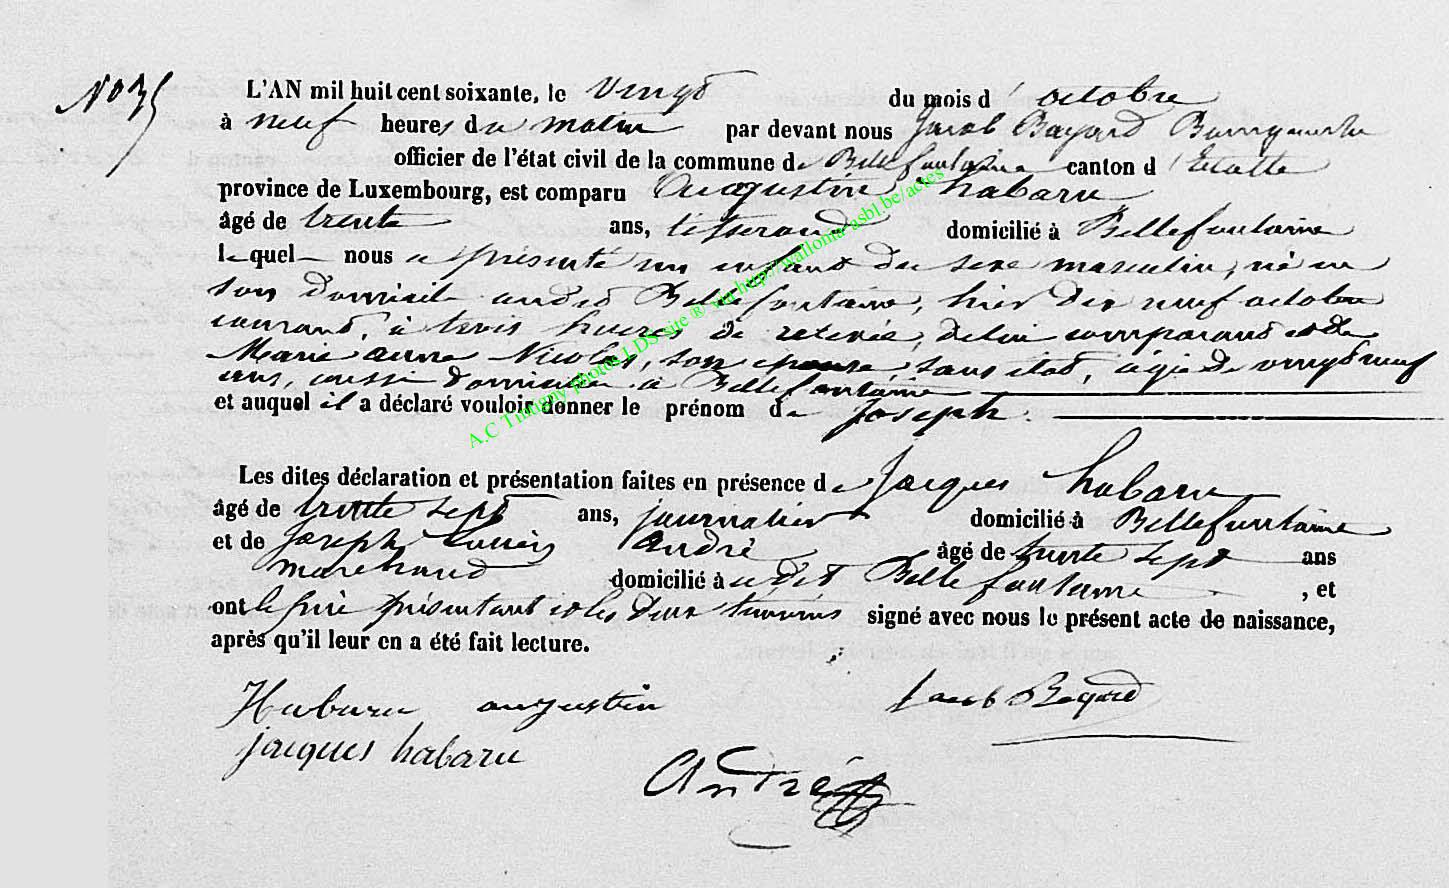 No 35
L'AN mil huit cent soixante, le vingt du mois d'octobre
à neuf heures du matin par devant nous Jacob Bayard Bourgmestre
officier de l'état civil de la commune de Bellefontaine canton d'Etalle
province de Luxembourg, est comparu Augustin habaru
âgé de trente ans, tisserand domicilié à Bellefontaine
lequel nous a présenté un enfant du sexe masculin, né en
son domicile audit Bellefontaine, hier dix neuf octobre
courant, à trois heures de relevée, de lui comparant et de
Marie anne Nicolas, son épouse, sans état, âgée de vingt neuf
ans, aussi domiciliée à Bellefontaine
et auquel il a déclaré vouloir donner le prénom de Joseph.
Les dites déclaration et présentation faites en présence de Jacques habaru
âgé de trente sept ans, journalier domicilié à Bellefontaine
et de Joseph André âgé de trente sept ans
marchand domicilié à udit Bellefontaine, et
ont le père présentant et les deux témoins signé avec nous le présent acte de naissance,
après qu'il leur en a été fait lecture.
Habaru augustin Jacob Bayard
jacques habaru
André
A.C Tintigny photos LDS site ® via http://wallonia-asbl.be/actes